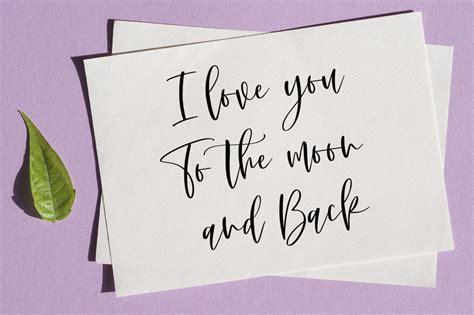 I love you
To the moon
and Back